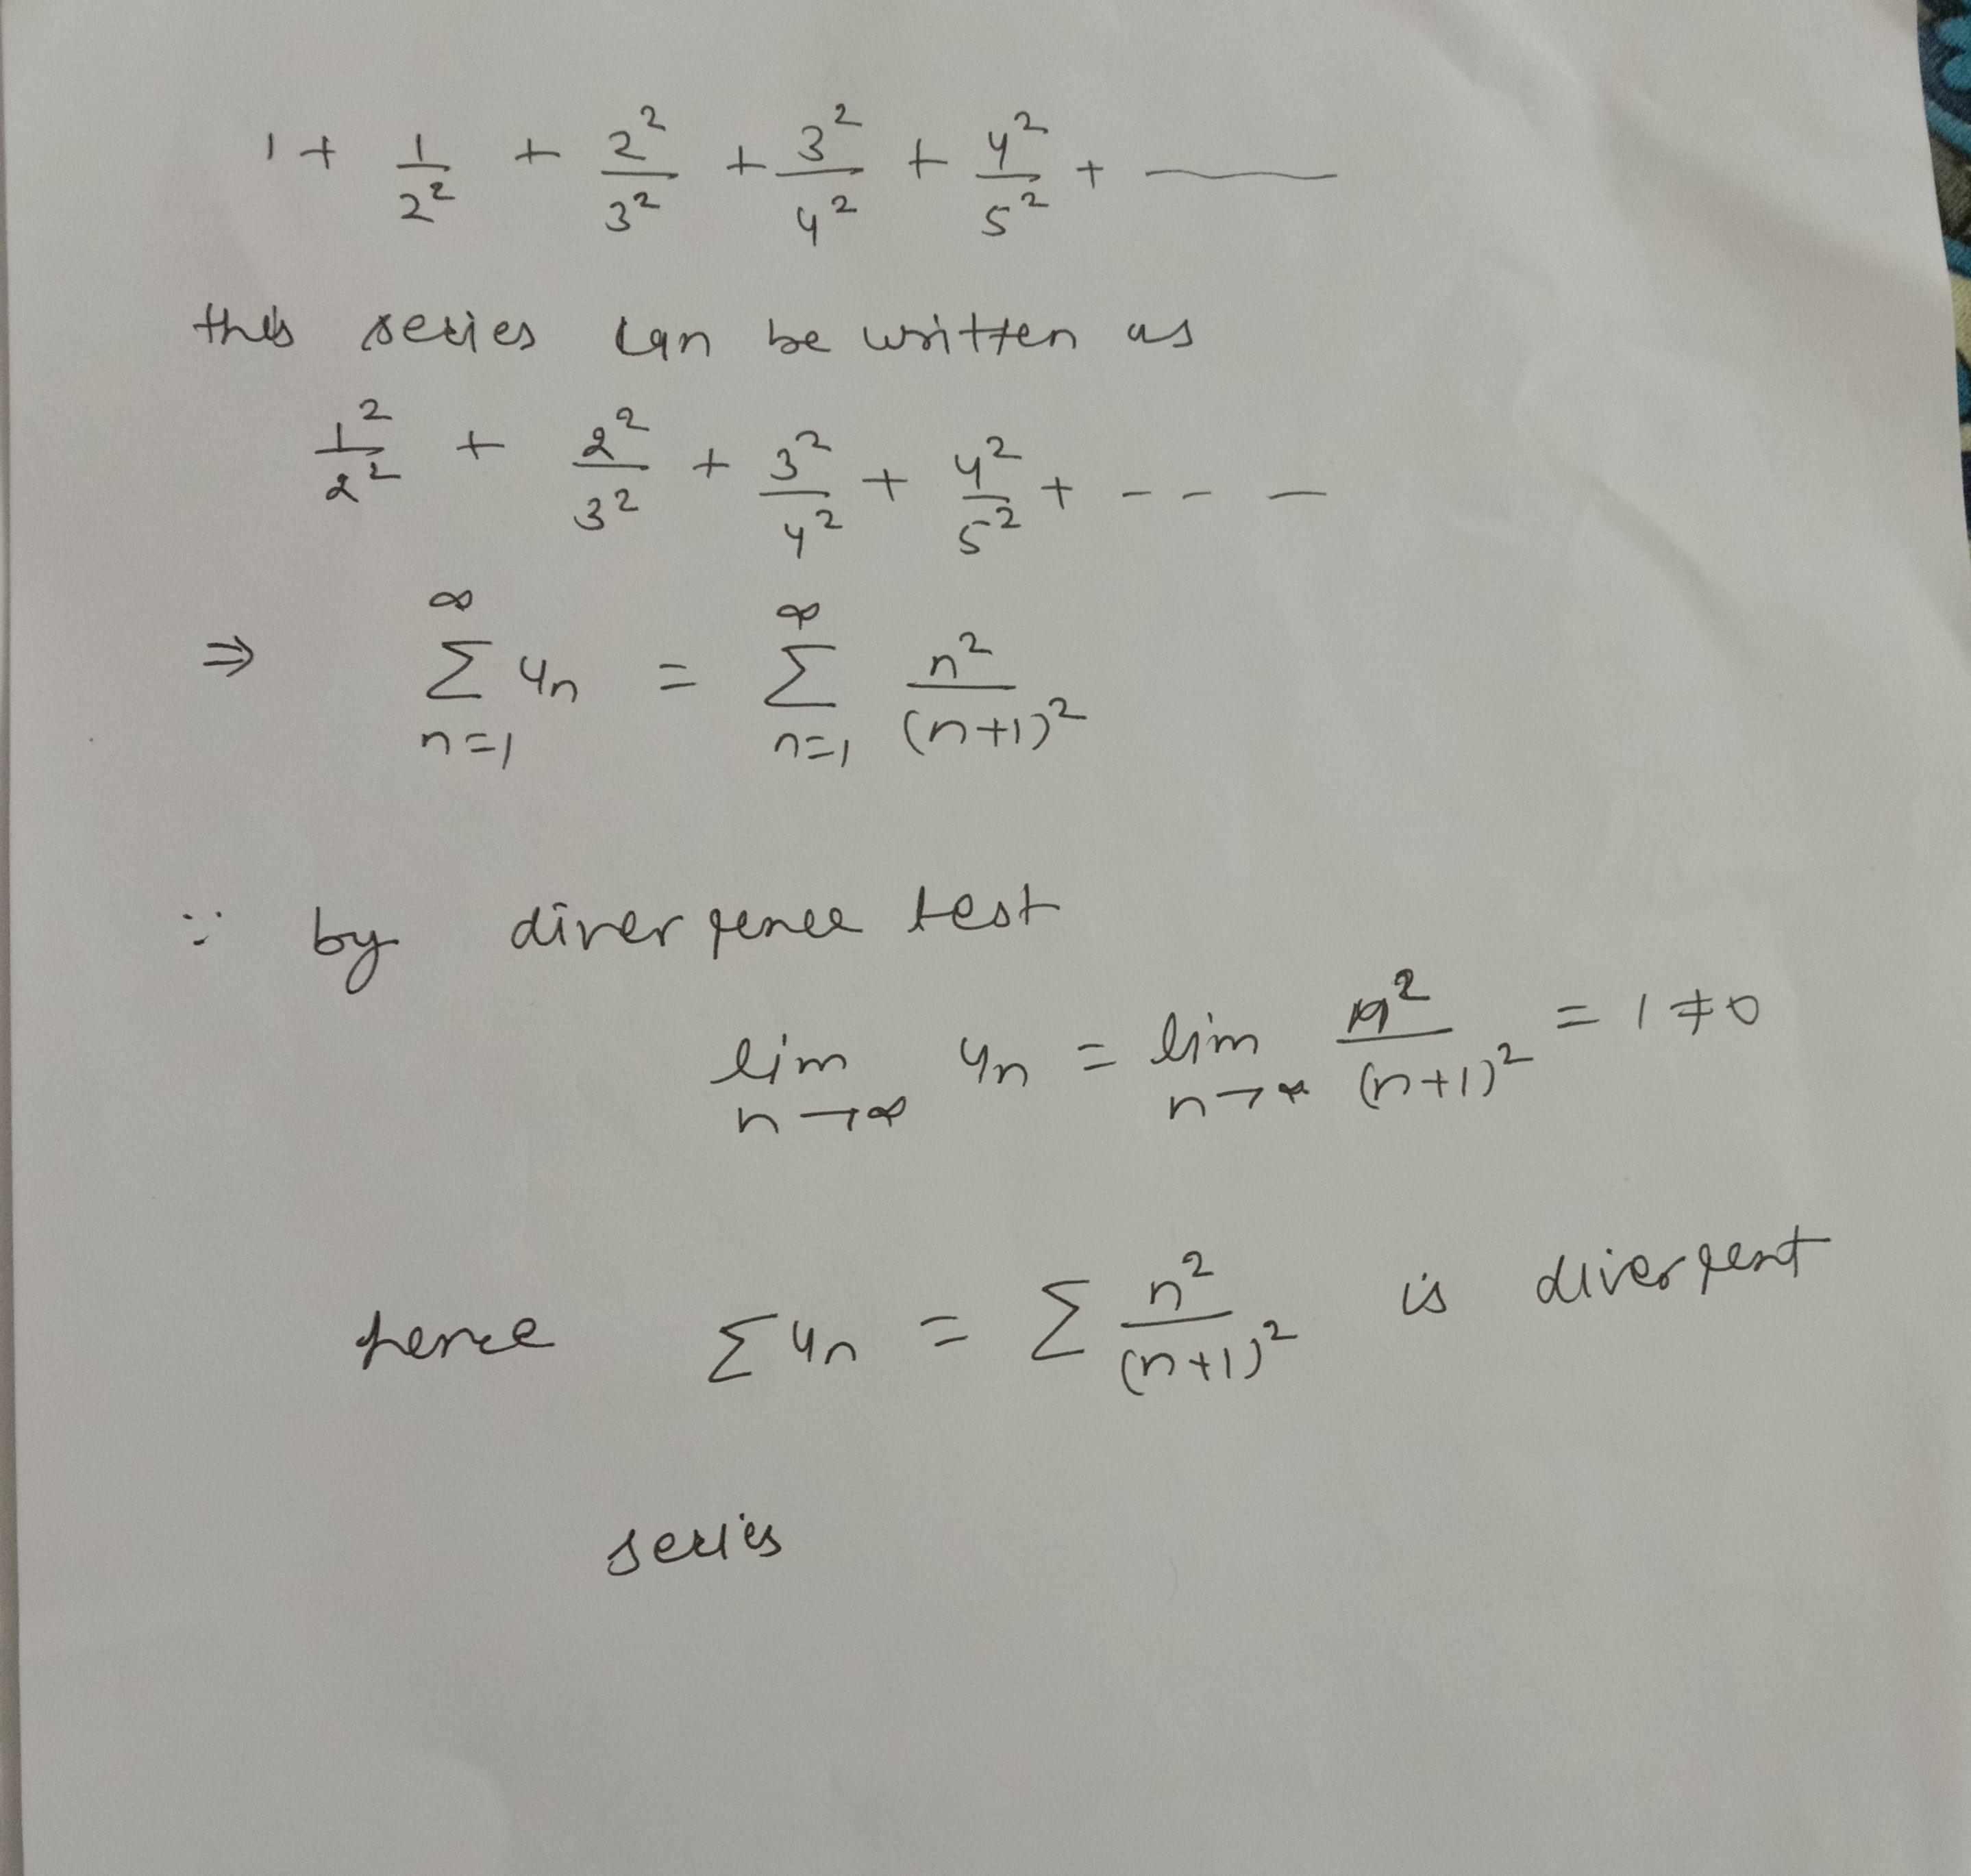 1 + 1/2² + 2²/3² + 3²/4² + 4²/5² + ———
this series can be written as
1²/2² + 2²/3² + 3²/4² + 4²/5² + - - -
⇒ ∑_{n=1}^{∞} un = ∑_{n=1}^{∞} n²/(n+1)²
∵ by divergence test
lim_{n→∞} un = lim_{n→∞} n²/(n+1)² = 1 ≠ 0
hence ∑un = ∑ n²/(n+1)² is divergent
series